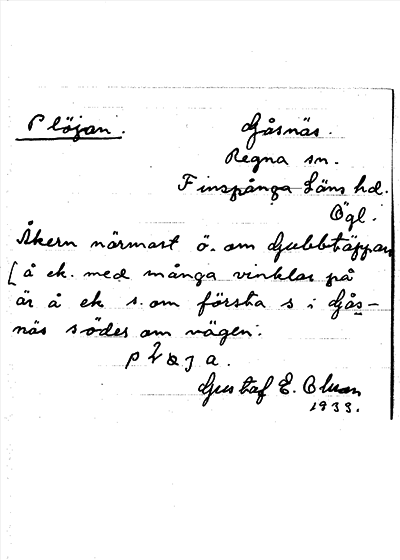 Plöjan.
Gåsnäs.
Regna sn.
Finspånga Läns hd.
Ögl.
Åkern närmast ö. om Gubbtäppan
[å ek. med många vinklar på
är å ek s. om första s i Gås-
näs söder om vägen.
Gustaf E. Oluan
1933.